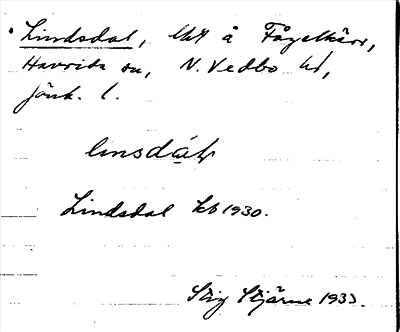 Lindsdal, lht å Fågelkärr,
Haurida sn, N. Vedbo hd,
Jönk. l.
linsdɑ̀:l
Lindsdal kb 1930.
Stig Stjärne 1933.